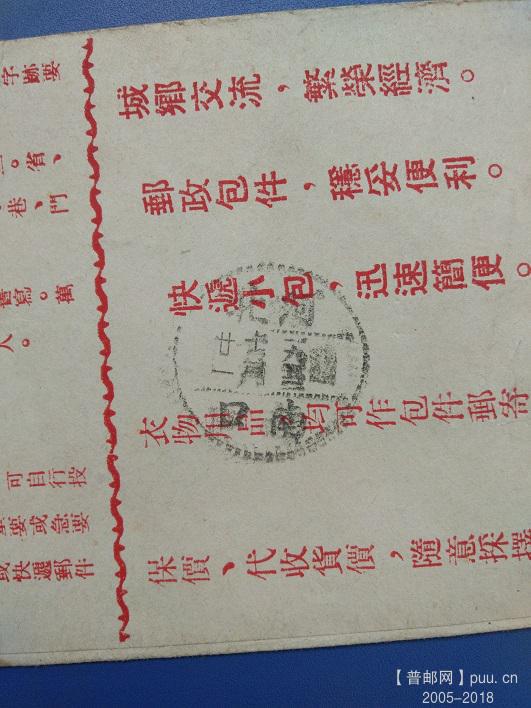 城鄉交流，繁榮經濟。
郵政包件，穩妥便利。
快遞小包，迅速簡便。
衣物用品，均可作包件郵寄
保價、代收貨價，隨意採擇
字跡要
。省、
巷、門
舊寫。萬
人。
可自行投
重要或急要
或快遞郵件
【普邮网】puu.cn
2005-2018